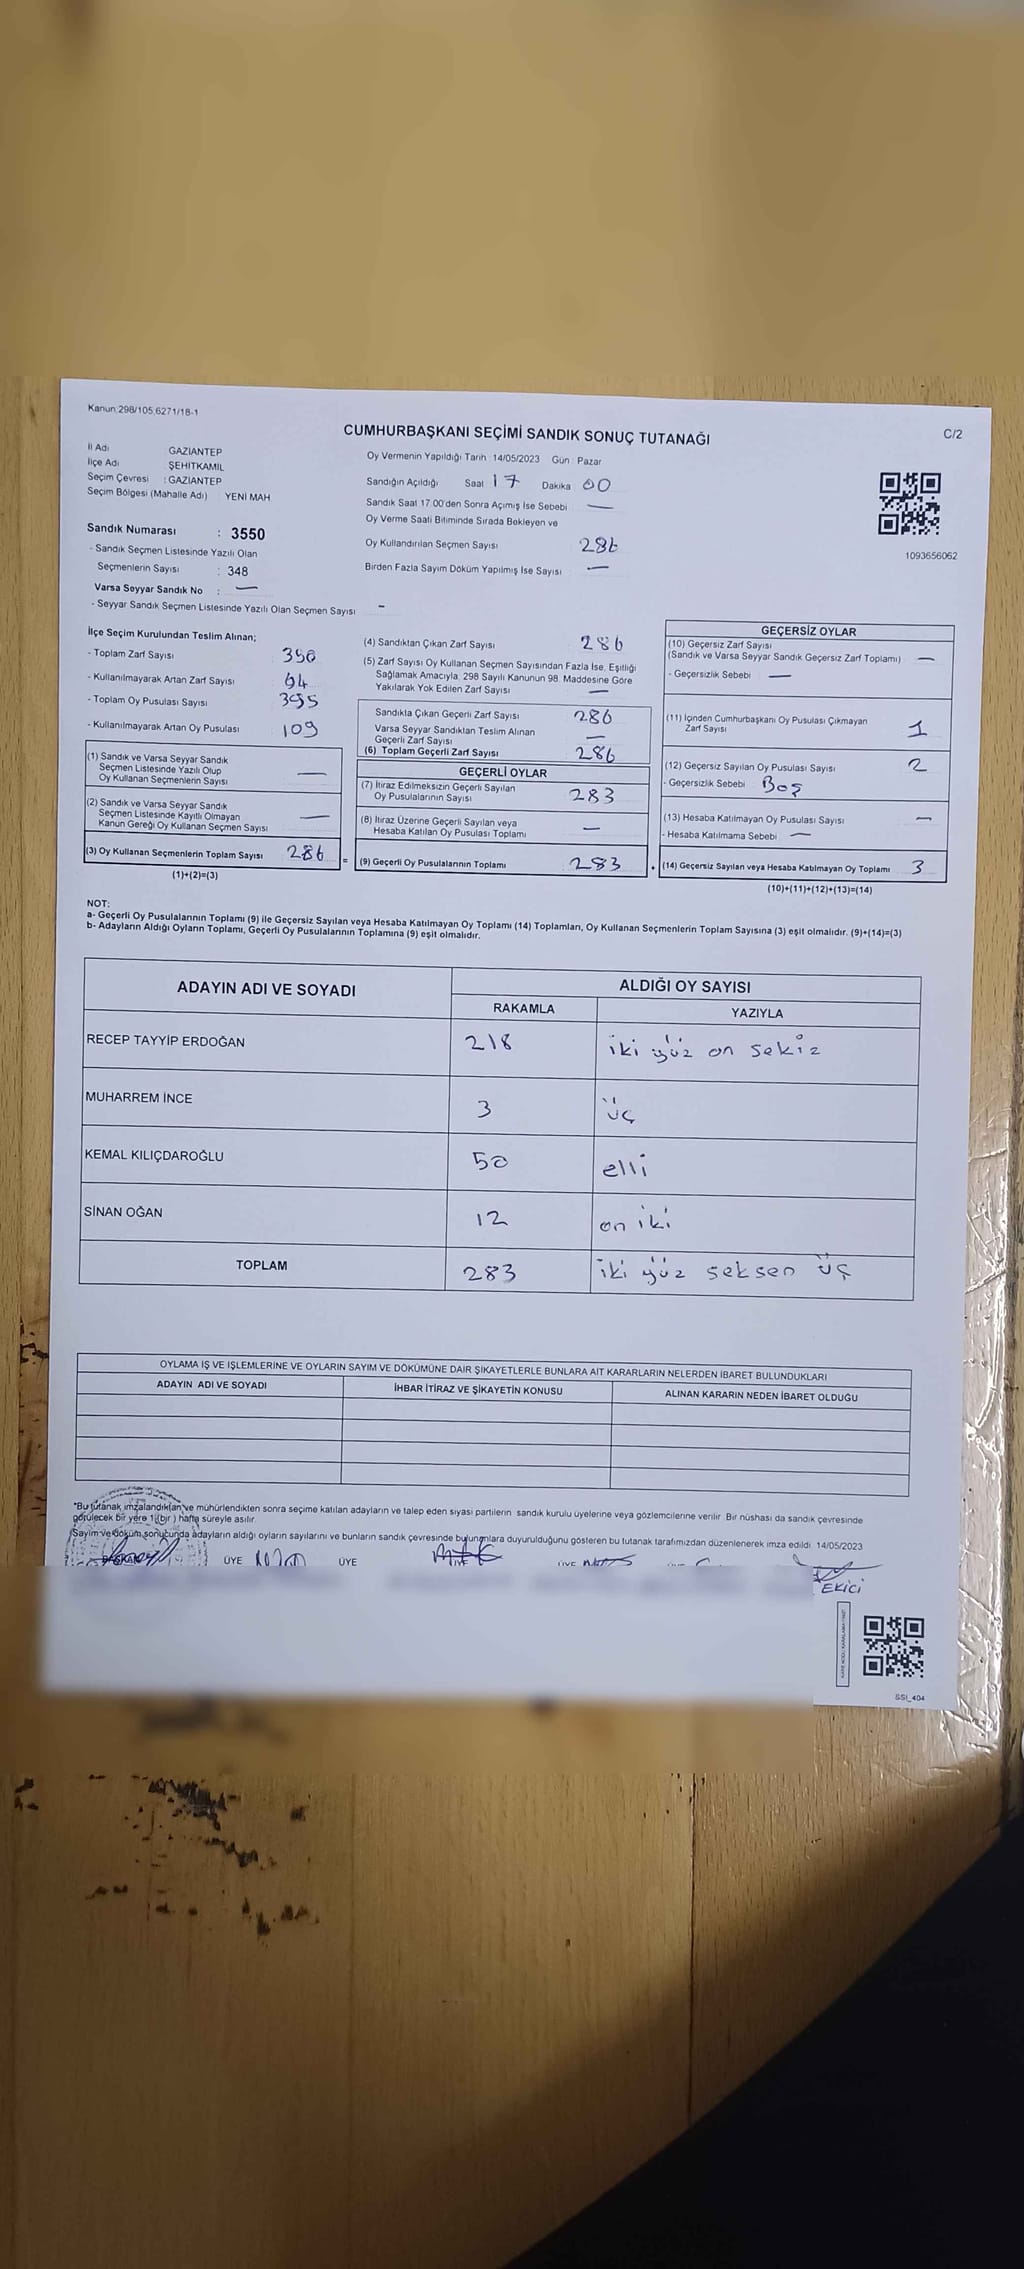 Kanun:298/105.6271/18-1
C/2
CUMHURBAŞKANI SEÇİMİ SANDIK SONUÇ TUTANAĞI
İl Adı GAZİANTEP
İlçe Adı ŞEHİTKAMİL
Seçim Çevresi : GAZİANTEP
Seçim Bölgesi (Mahalle Adı) YENİ MAH
Sandık Numarası : 3550
- Sandık Seçmen Listesinde Yazılı Olan
Seçmenlerin Sayısı : 348
Varsa Seyyar Sandık No : —
- Seyyar Sandık Seçmen Listesinde Yazılı Olan Seçmen Sayısı -
Oy Vermenin Yapıldığı Tarih 14/05/2023 Gün : Pazar
Sandığın Açıldığı Saat 17 Dakika 00
Sandık Saat 17.00'den Sonra Açımış İse Sebebi —
Oy Verme Saati Bitiminde Sırada Bekleyen ve
Oy Kullandırılan Seçmen Sayısı 286
Birden Fazla Sayım Döküm Yapılmış İse Sayısı —
1093656062
İlçe Seçim Kurulundan Teslim Alınan;
- Toplam Zarf Sayısı 350
- Kullanılmayarak Artan Zarf Sayısı 64
- Toplam Oy Pusulası Sayısı 395
- Kullanılmayarak Artan Oy Pusulası 109
(1) Sandık ve Varsa Seyyar Sandık
Seçmen Listesinde Yazılı Olup
Oy Kullanan Seçmenlerin Sayısı —
(2) Sandık ve Varsa Seyyar Sandık
Seçmen Listesinde Kayıtlı Olmayan
Kanun Gereği Oy Kullanan Seçmen Sayısı —
(3) Oy Kullanan Seçmenlerin Toplam Sayısı 286
(1)+(2)=(3)
(4) Sandıktan Çıkan Zarf Sayısı 286
(5) Zarf Sayısı Oy Kullanan Seçmen Sayısından Fazla İse, Eşitliği
Sağlamak Amacıyla, 298 Sayılı Kanunun 98. Maddesine Göre
Yakılarak Yok Edilen Zarf Sayısı —
Sandıkta Çıkan Geçerli Zarf Sayısı 286
Varsa Seyyar Sandıktan Teslim Alınan
Geçerli Zarf Sayısı —
(6) Toplam Geçerli Zarf Sayısı 286
GEÇERLİ OYLAR
(7) İtiraz Edilmeksizin Geçerli Sayılan
Oy Pusulalarının Sayısı 283
(8) İtiraz Üzerine Geçerli Sayılan veya
Hesaba Katılan Oy Pusulası Toplamı —
= (9) Geçerli Oy Pusulalarının Toplamı 283
GEÇERSİZ OYLAR
(10) Geçersiz Zarf Sayısı
(Sandık ve Varsa Seyyar Sandık Geçersiz Zarf Toplamı) —
- Geçersizlik Sebebi —
(11) İçinden Cumhurbaşkanı Oy Pusulası Çıkmayan
Zarf Sayısı 1
(12) Geçersiz Sayılan Oy Pusulası Sayısı 2
- Geçersizlik Sebebi Boş
(13) Hesaba Katılmayan Oy Pusulası Sayısı —
- Hesaba Katılmama Sebebi —
+ (14) Geçersiz Sayılan veya Hesaba Katılmayan Oy Toplamı 3
(10)+(11)+(12)+(13)=(14)
NOT:
a- Geçerli Oy Pusulalarının Toplamı (9) ile Geçersiz Sayılan veya Hesaba Katılmayan Oy Toplamı (14) Toplamları, Oy Kullanan Seçmenlerin Toplam Sayısına (3) eşit olmalıdır. (9)+(14)=(3)
b- Adayların Aldığı Oyların Toplamı, Geçerli Oy Pusulalarının Toplamına (9) eşit olmalıdır.
ADAYIN ADI VE SOYADI ALDIĞI OY SAYISI
RAKAMLA YAZIYLA
RECEP TAYYİP ERDOĞAN 218 iki yüz on sekiz
MUHARREM İNCE 3 üç
KEMAL KILIÇDAROĞLU 50 elli
SİNAN OĞAN 12 on iki
TOPLAM 283 iki yüz seksen üç
OYLAMA İŞ VE İŞLEMLERİNE VE OYLARIN SAYIM VE DÖKÜMÜNE DAİR ŞİKAYETLERLE BUNLARA AİT KARARLARIN NELERDEN İBARET BULUNDUKLARI
ADAYIN ADI VE SOYADI İHBAR İTİRAZ VE ŞİKAYETİN KONUSU ALINAN KARARIN NEDEN İBARET OLDUĞU
*Bu tutanak imzalandıktan ve mühürlendikten sonra seçime katılan adayların ve talep eden siyasi partilerin sandık kurulu üyelerine veya gözlemcilerine verilir. Bir nüshası da sandık çevresinde
görülecek bir yere 1 (bir) hafta süreyle asılır.
Sayım ve döküm sonucunda adayların aldığı oyların sayılarını ve bunların sandık çevresinde bulunanlara duyurulduğunu gösteren bu tutanak tarafımızdan düzenlenerek imza edildi. 14/05/2023
ÜYE ÜYE
EKİCİ
SSI_404